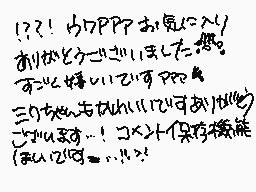 !???! ウワアアア お気に入り
ありがとうございました
すごく嬉しいです アアア
ミクちゃんもかわいいですありがとう
ございます…! コメント保存機能
ほしいです